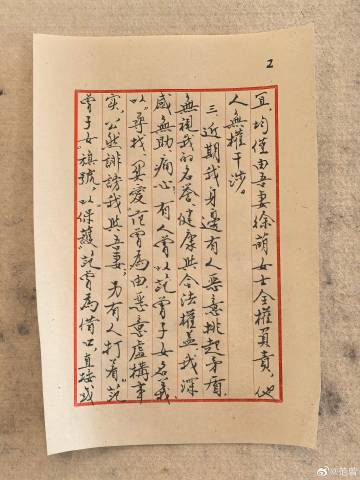 2
宜，均僅由吾妻徐萌女士全權負責，他
人無權干涉。
三、近期我身邊有人惡意挑起矛盾，
無視我的名譽、健康與合法權益，我深
感無助、痛心！有人曾以范曾子女名義，
以“尋找、異愛范曾為由，惡意虛構事
实，公然誹謗我與吾妻，另有人打着“范
曾子女”旗號，以“保護”范曾為借口，直接或
@范曾